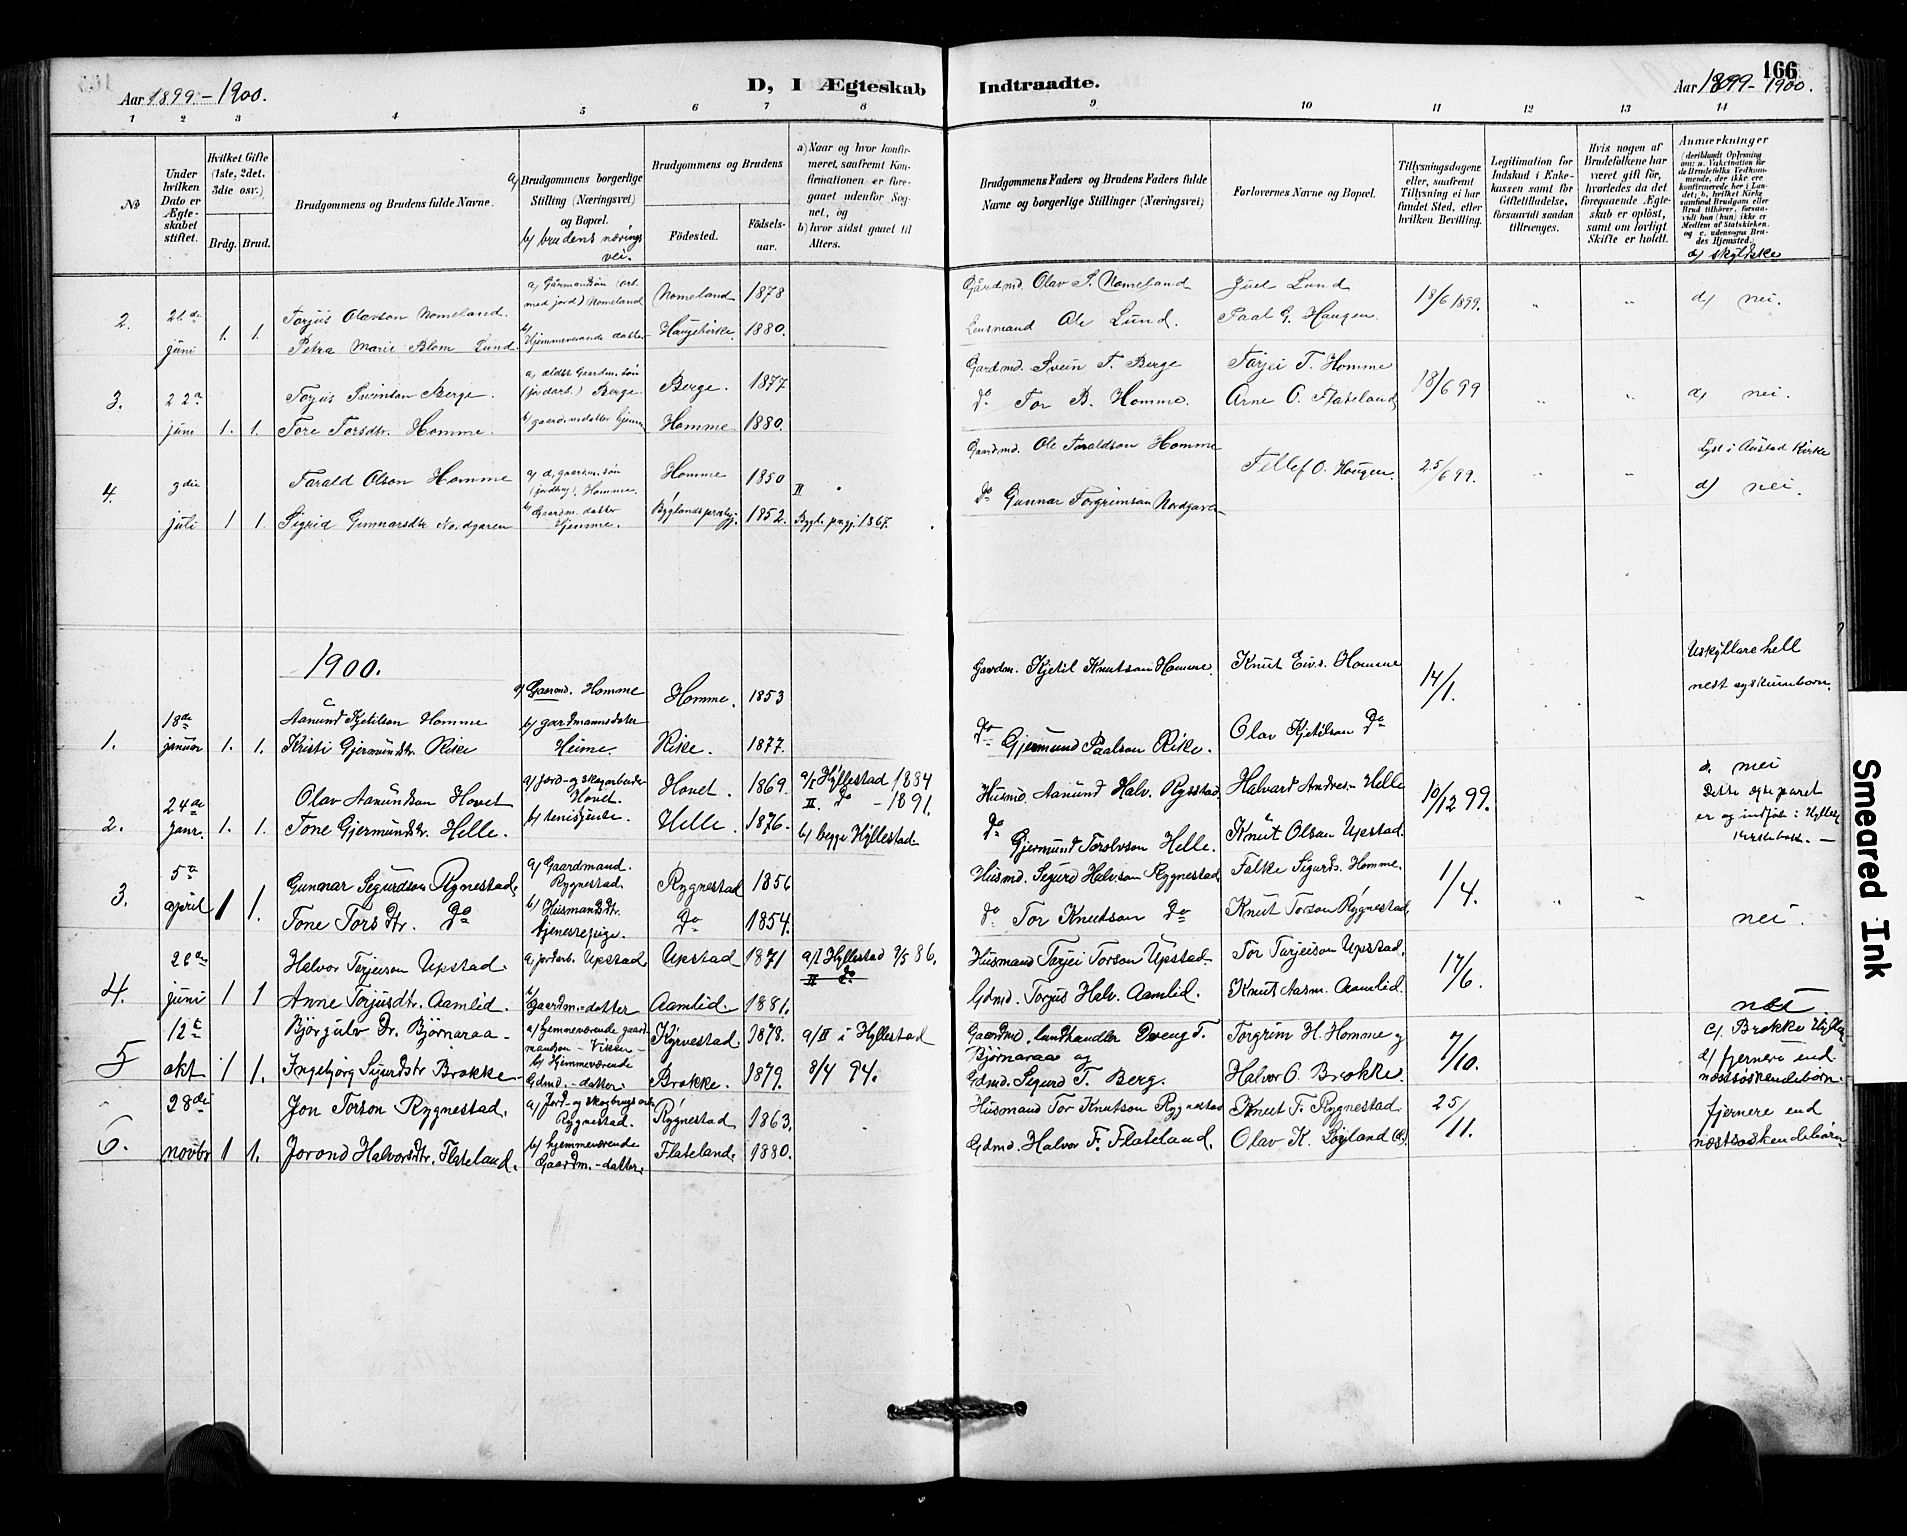 166
Aar 1899-1900.
D, I Ægteskab Indtraadte.
Aar 1899-1900.
1 2 3 4 5 6 7 8 9 10 11 12 13 14
No
Under hvilken Dato er Ægteskabet stiftet.
Hvilket Gifte (1ste, 2det, 3die osv.)
Brdg. Brud.
Brudgommens og Brudens fulde Navne.
a) Brudgommens borgerlige Stilling (Næringsvei) og Bopæl.
b) brudens nærings vei.
Brudgommens og Brudens
Fødested. Fødselsaar.
a) Naar og hvor konfirmeret, saafremt Konfirmationen er foregaaet udenfor Sognet, og
b) hvor sidst gaaet til Alters.
Brudgommens Faders og Brudens Faders fulde Navne og borgerlige Stillinger (Næringsvei)
Forlovernes Navne og Bopæl.
Tillysningsdagene eller, saafremt Tillysning ei har fundet Sted, efter hvilken Bevilling.
Legitimation for Indskud i Enkekassen samt for Giftetilladelse, forsaavidt saadan tiltrænges.
Hvis nogen af Brudefolkene har været gift før, hvorledes da det foregaaende Ægteskab er opløst, samt om lovligt Skifte er holdt.
Anmerkninger
(deriblandt Oplysning om: a. Vakcination for de Brudefolks Vedkommende, der ikke ere konfirmerede her i Landet; b. hvilket Kirkesamfund Brudgom eller Brud tilhører, forsaavidt han (hun) ikke er Medlem af Statskirken, og c. udensogns Brudes Hjemsted.
d) skyldske
2. 21de juni 1. 1.
Torjus Olavson Nomeland.
Petra Marie Blom Lund.
a) Gaarmandsøn (arb. med jord) Nomeland
b) Hjemmeværende datter
Nomeland 1878
Haugekirke 1880.
Gårdmd. Olav T. Nomeland
Lensmand Ole Lund.
Juel Lund
Paal G. Haugen.
18/6 1899. " "
d) nei.
3. 22a juni 1. 1.
Torjus Sveinson Berge.
Tore Torsdtr. Homme.
a) ældst Gaardm. søn (jordarb.) Berge.
b) gaardmdatter hjemme
Berge. 1877
Homme. 1880.
Gardmd. Svein T. Berge
do Tor B. Homme.
Tarjei T. Homme
Arne O. Flateland
18/6 99 " "
d) nei.
4. 3die juli 1 1.
Tarald Olson Homme
Sigrid Gunnarsdtr Nordgaren
a) d. gaardm. søn (jordbrug). Homme.
b) Gaardm. datter Hjemme.
Homme 1850
Byglandsprestegj. 1852.
II "
Bygl. prgj. 1867.
Gaardmd. Ole Taraldson Homme
do Gunnar Torgrimson Nordgaren
Tellef O. Haugen.
25/6 99. " "
Lyst i Austad Kirke
d) nei.
1900.
1. 18de januar 1. 1.
Aanund Kjetilson Homme
Kristi Gjermundstr. Rike
a) Gaarmd. Homme
b) gardmannsdater Heime.
Homme. 1853
Rike. 1877.
Gardm. Kjetil Knutson Homme.
do Gjermund Paalson Rike.
Knut Eivs. Homme
Olav Kjetilson do
14/1.
Uskyllare hell
nest syskunborn.
2. 24de janr. 1. 1.
Olav Aanundson Hovet
Tone Gjermundstr. Helle.
a) Jord- og skogarbeider Hovet.
b) tenisjente.
Hovet. 1869.
Helle. 1876.
a/I Hyllestad 1884
II. do - 1891.
b) begge Hyllestad
Husmd. Aanund Halv. Rysstad.
do Gjermund Torolvson Helle.
Halvard Andres- Helle
Knut Olson Upstad.
10/12 99.
d. nei
Dette egteparet er og indført i Hyllest. kirkebok. —
3. 5a april 1 1.
Gunnar Segurdson Rygnestad.
Tone Torsdtr. do
a) Gaardmand. Rygnestad.
b) Husmandsdtr. tjenestepige.
Rygnestad 1856
do 1854.
Husmd. Segurd Halvson Rygnestad.
do Tor Knutson do
Falke Sigurds. Homme.
Knut Torson Rygnestad.
1/4. " "
nei.
4. juni 1 1
Halvor Tarjeison Upstad.
Anne Torjusdtr. Aamlid.
a. jordarb. Upstad.
b) Gaardm.-datter
Upstad 1871
Aamlid. 1881.
a/I Hyllestad 9/5 86.
II do
Husmand Tarjei Torson Upstad.
Gdmd. Torjus Halv. Aamlid.
Tor Tarjeison Upstad.
Knut Aasm. Aamlid.
17/6.
nei
5 12t okt 1 1.
Bjørgulv Dr. Bjørnaraa -
Ingebjørg Sigurdstr Brokke
a) hjemmeværende gaardmandsøn - Viken -
b) Hjemmeværende Gdmd.-datter
Kyrvestad. 1878.
Brokke. 1879.
a/II i Hyllestad
8/4 94.
Gaardmd. landhandler Dreng T. Bjørnaraa og
Gdmd. Sigurd T. Berg.
Torgrim H. Homme og
Halvor O. Brokke.
7/10.
c) Brokke Hyllest.
d) fjernere end næstsøskendebørn.
6. 28de novbr 1 1.
Jon Torson Rygnestad.
Jorond Halvorsdtr. Flateland.
a) Jord- og skogbrugsarb. Rygnestad.
b) hjemmeværende Gaardm.-datter.
Rygnestad 1863.
Flateland. 1880.
Husmand Tor Knutson Rygnestad
Gdmd. Halvor F. Flateland.
Knut T. Rygnestad.
Olav K. Løyland
25/11.
fjernere end
næstsøskendebørn
Smeared Ink